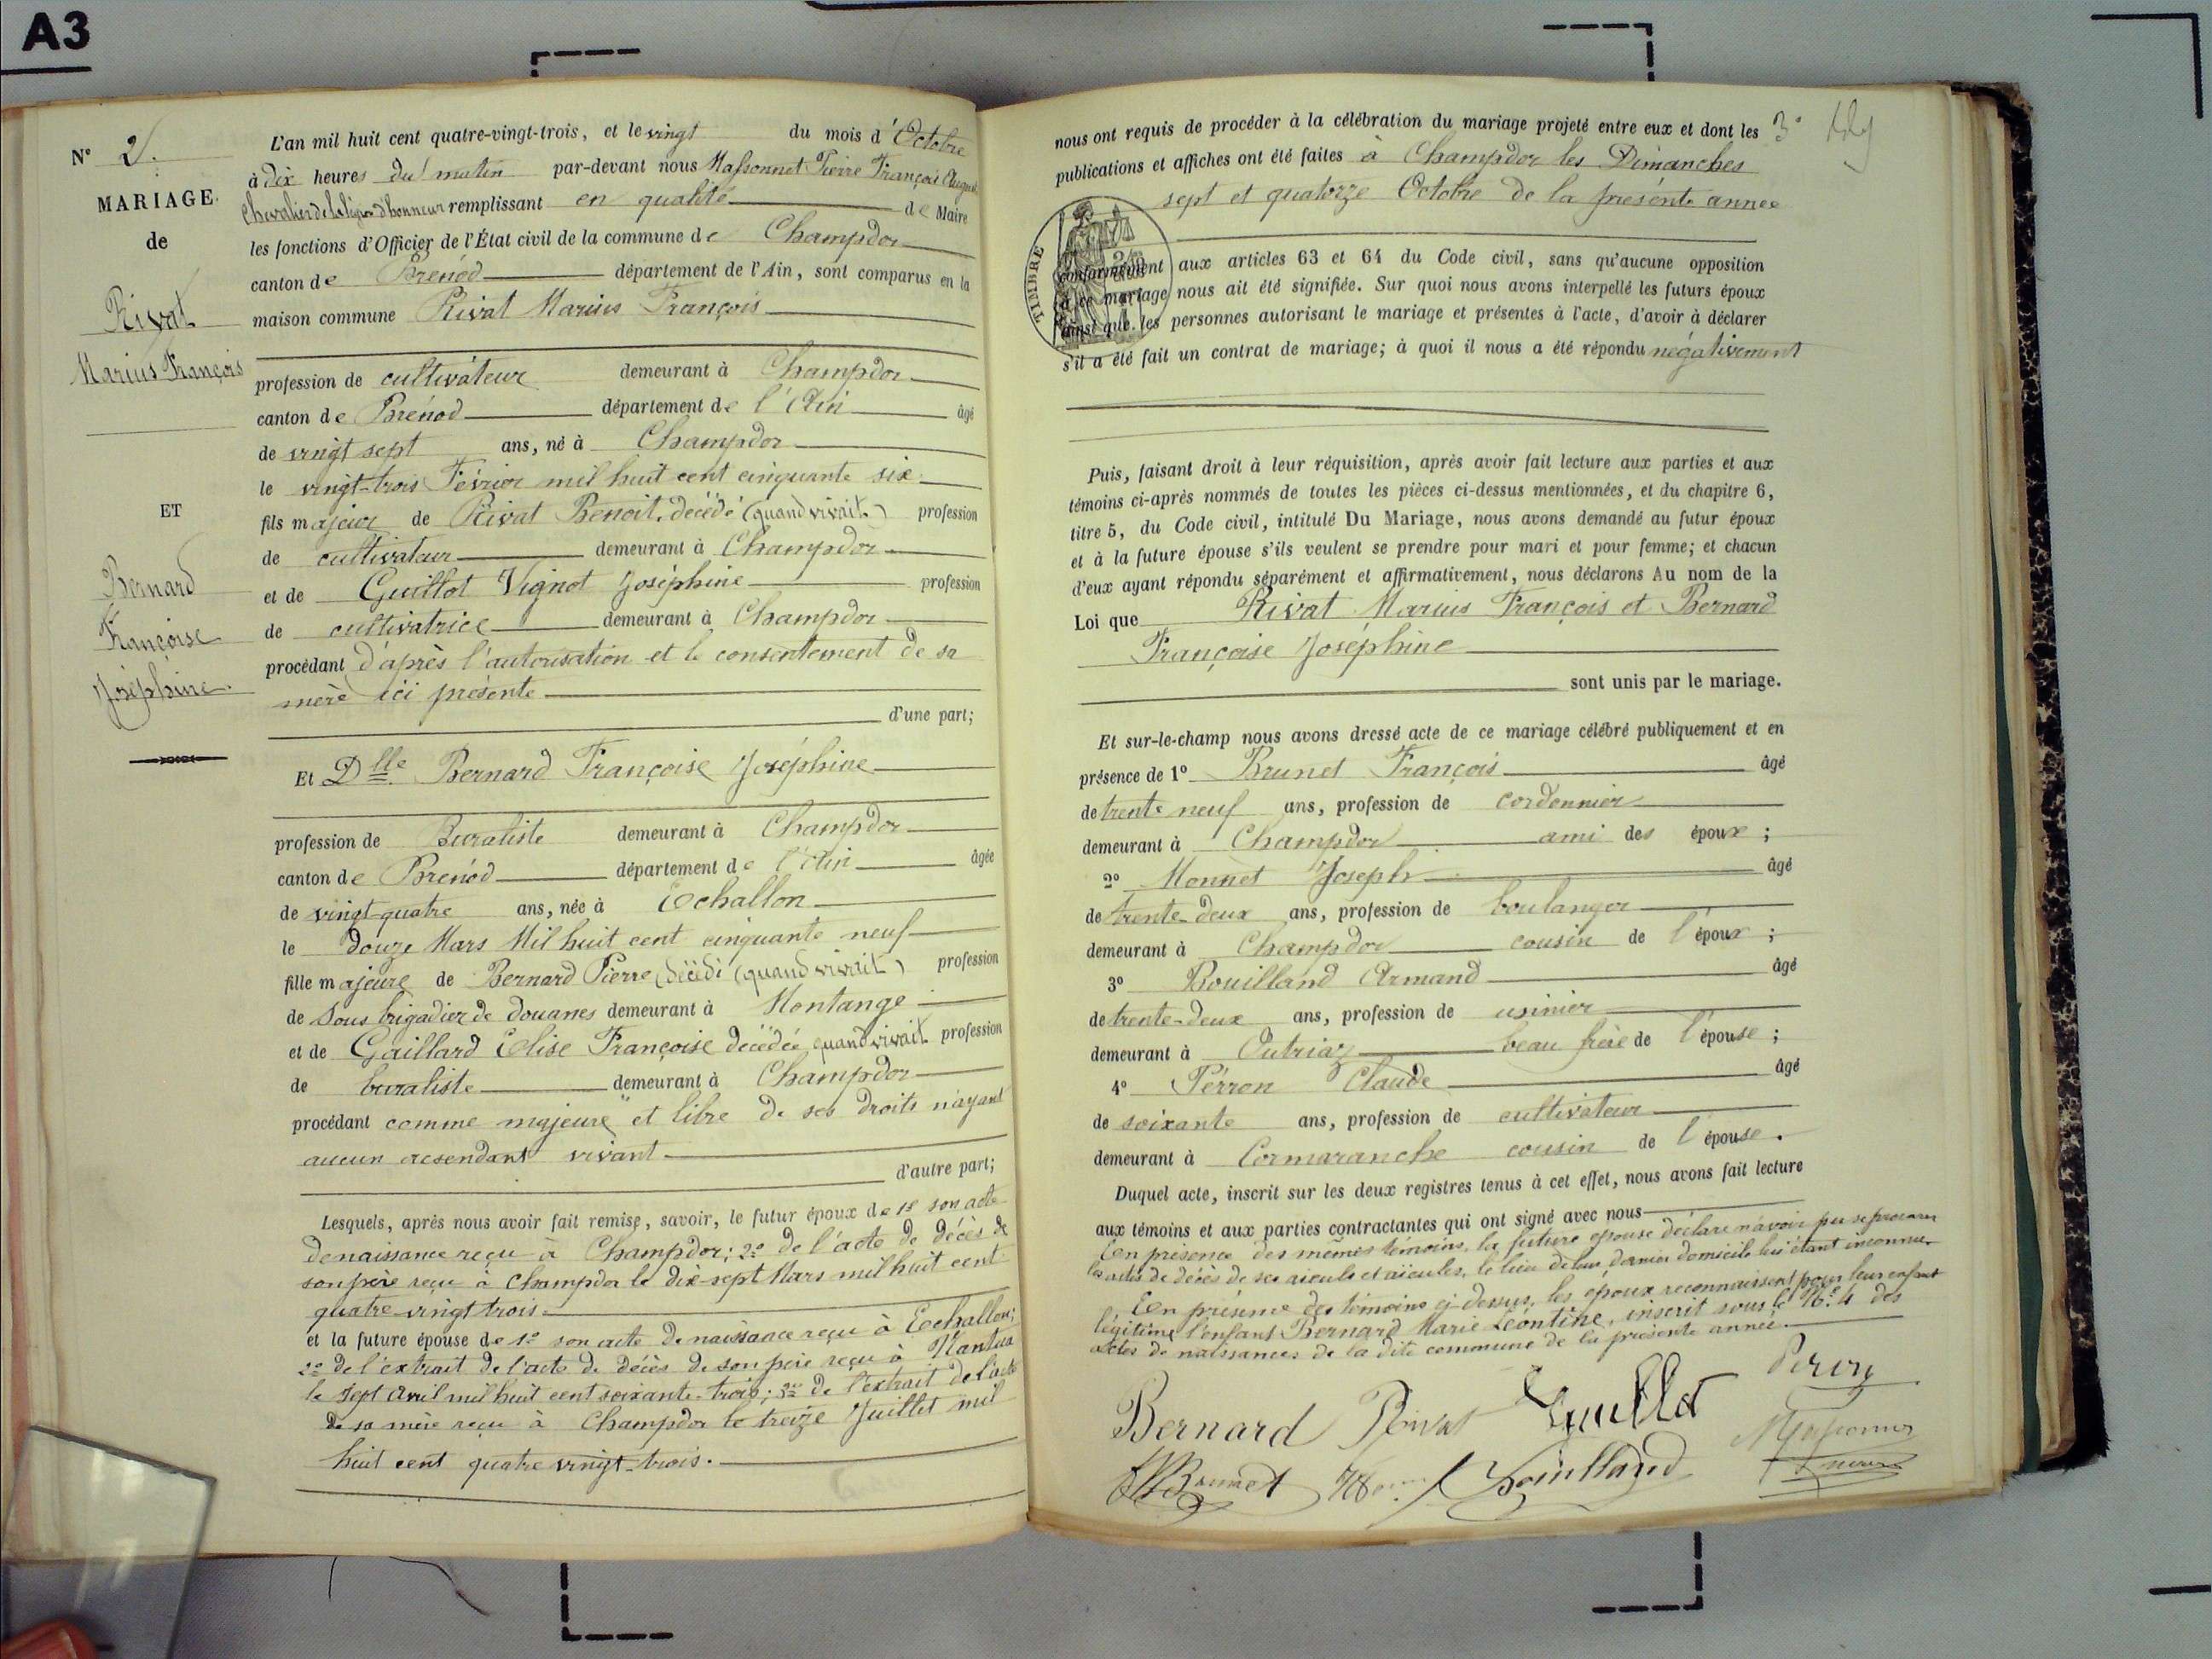 A3
N° 2.
MARIAGE
de
Rivat
Marius François
ET
Bernard
Françoise
Joséphine.
L'an mil huit cent quatre-vingt-trois, et le vingt du mois d'Octobre
à dix heures du matin par-devant nous Massonnet Pierre François
Chevalier de la légion d'honneur remplissant en qualité de Maire
les fonctions d'Officier de l'État civil de la commune de Champdor
canton de Brénod département de l'Ain, sont comparus en la
maison commune Rivat Marius François
profession de cultivateur demeurant à Champdor
canton de Brénod département de l'Ain âgé
de vingt sept ans, né à Champdor
le vingt-trois Février mil huit cent cinquante six
fils majeur de Rivat Benoit, décédé (quand vivait) profession
de cultivateur demeurant à Champdor
et de Guillot Vignot Joséphine profession
de cultivatrice demeurant à Champdor
procédant d'après l'autorisation et le consentement de sa
mère ici présente
d'une part;
Et Dlle Bernard Françoise Joséphine
profession de Buraliste demeurant à Champdor
canton de Brénod département de l'Ain âgée
de vingt-quatre ans, née à Echallon
le douze Mars Mil huit cent cinquante neuf
fille majeure de Bernard Pierre (décédé (quand vivait) profession
de Sous brigadier de douanes demeurant à Montange
et de Gaillard Elise Françoise décédée quand vivait profession
de buraliste demeurant à Champdor
procédant comme majeure et libre de ses droits n'ayant
aucun acsendant vivant
d'autre part;
Lesquels, après nous avoir fait remise, savoir, le futur époux de 1° son acte
de naissance reçu à Champdor; 2° de l'acte de décès de
son père reçu à Champdor le dix-sept Mars mil huit cent
quatre-vingt trois.
et la future épouse de 1° son acte de naissance reçu à Echallon;
2° de l'extrait de l'acte de décès de son père reçu à Nantua
le sept Avril mil huit cent soixante-trois; 3° de l'extrait de l'acte
de sa mère reçu à Champdor le treize Juillet mil
huit cent quatre vingt-trois.
3°
nous ont requis de procéder à la célébration du mariage projeté entre eux et dont les
publications et affiches ont été faites à Champdor les Dimanches
sept et quatorze Octobre de la présente année
TIMBRE
conformément aux articles 63 et 64 du Code civil, sans qu'aucune opposition
à ce mariage nous ait été signifiée. Sur quoi nous avons interpellé les futurs époux
ainsi que les personnes autorisant le mariage et présentes à l'acte, d'avoir à déclarer
s'il a été fait un contrat de mariage; à quoi il nous a été répondu négativement
Puis, faisant droit à leur réquisition, après avoir fait lecture aux parties et aux
témoins ci-après nommés de toutes les pièces ci-dessus mentionnées, et du chapitre 6,
titre 5, du Code civil, intitulé Du Mariage, nous avons demandé au futur époux
et à la future épouse s'ils veulent se prendre pour mari et pour femme; et chacun
d'eux ayant répondu séparément et affirmativement, nous déclarons Au nom de la
Loi que Rivat Marius François et Bernard
Françoise Joséphine
sont unis par le mariage.
Et sur-le-champ nous avons dressé acte de ce mariage célébré publiquement et en
présence de 1° Brunet François âgé
de trente neuf ans, profession de cordonnier
demeurant à Champdor ami des époux;
2° Monnet Joseph âgé
de trente-deux ans, profession de boulanger
demeurant à Champdor cousin de l'époux;
3° Bouilland Armand âgé
de trente-deux ans, profession de usinier
demeurant à Outriaz beau frère de l'épouse;
4° Pérron Claude âgé
de soixante ans, profession de cultivateur
demeurant à Cormaranche cousin de l'épouse.
Duquel acte, inscrit sur les deux registres tenus à cet effet, nous avons fait lecture
aux témoins et aux parties contractantes qui ont signé avec nous
En présence des mêmes témoins, la future épouse déclare n'avoir pu se procurer
les actes de décès de ses aïeuls et aïeules, le lieu de leur dernier domicile lui étant inconnu.
En présence des témoins ci-dessus, les époux reconnaissent pour leur enfant
légitime l'enfant Bernard Marie Léontine, inscrit sous le N° 4 des
actes de naissances de la dite commune de la présente année.
Bernard Rivat Guillot
Brunet Bouilland